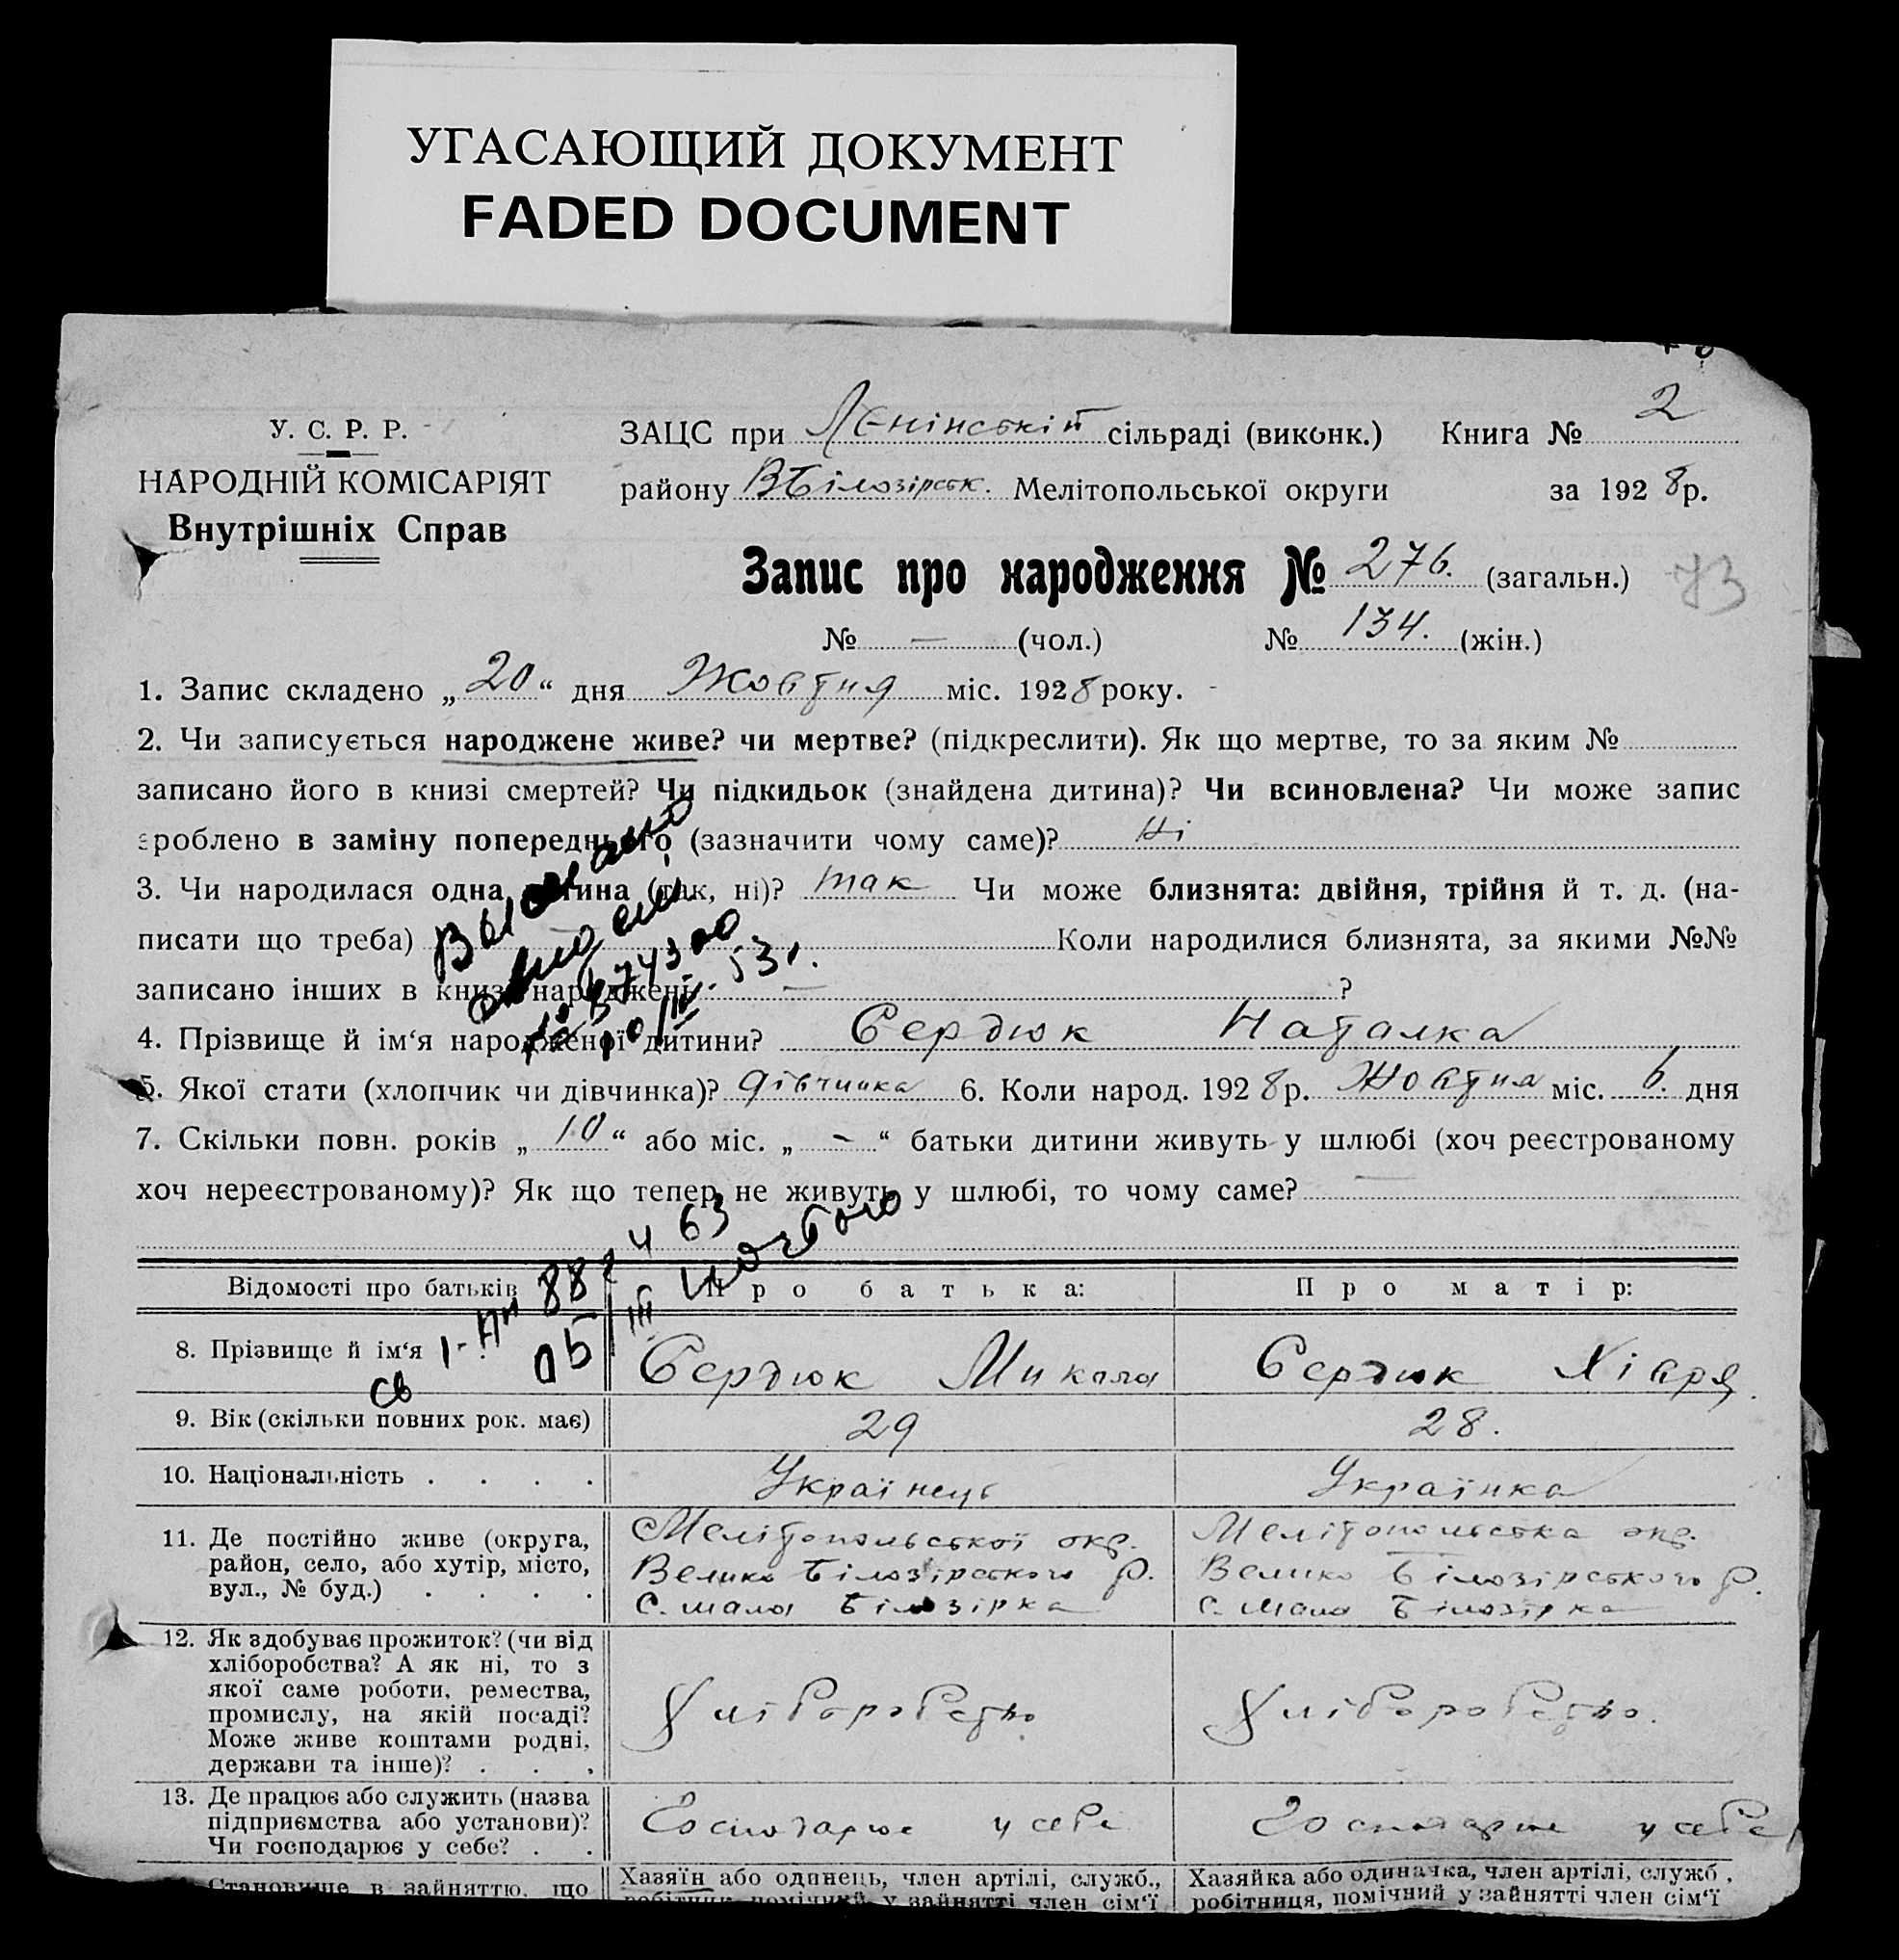 УГАСАЮЩИЙ ДОКУМЕНТ
FADED DOCUMENT
У. С. Р. Р.
НАРОДНІЙ КОМІСАРІЯТ
Внутрішніх Справ
ЗАЦС при Ленінській сільраді (виконк.) Книга № 2
району ВБілозірськ. Мелітопольської округи за 1928р.
Запис про народження № 276. (загальн.) 73
№ — (чол.) № 134. (жін.)
1. Запис складено „20“ дня Жовтня міс. 1928 року.
2. Чи записується народжене живе? чи мертве? (підкреслити). Як що мертве, то за яким №
записано його в книзі смертей? Чи підкидьок (знайдена дитина)? Чи всиновлена? Чи може запис
зроблено в заміну попереднього (зазначити чому саме)? Ні
3. Чи народилася одна дитина (так, ні)? так Чи може близнята: двійня, трійня й т. д. (на-
писати що треба) Коли народилися близнята, за якими №№
записано інших в книзі народжень — ?
4. Прізвище й ім‘я народженої дитини? Сердюк Наталка
5. Якої стати (хлопчик чи дівчинка)? дівчинка 6. Коли народ. 1928р. Жовтня міс. 6. дня
7. Скільки повн. років „10“ або міс. „-“ батьки дитини живуть у шлюбі (хоч реєстрованому
хоч нереєстрованому)? Як що тепер не живуть у шлюбі, то чому саме? —
Відомості про батьків Про батька: Про матір:
8. Прізвище й ім‘я Сердюк Микола Сердюк Хівря
9. Вік (скільки повних рок. має) 29 28.
10. Національність . . . . Українець Українка
11. Де постійно живе (округа,
район, село, або хутір, місто,
вул., № буд.) . . . .
Мелітопольської окр.
Велико Білозірського р.
с. мала Білозірка
Мелітопольська окр.
Велико Білозірського р.
с. мала Білозірка
12. Як здобуває прожиток? (чи від
хліборобства? А як ні, то з
якої саме роботи, ремества,
промислу, на якій посаді?
Може живе коштами родні,
держави та інше)? . . .
Хліборобство
Хліборобство.
13. Де працює або служить (назва
підприємства або установи)?
Чи господарює у себе? . .
Господарює у себе
Господарює у себе
Становище в зайняттю, що
Хазяїн або одинець, член артілі, служб.,
робітник, помічний у зайнятті член сім‘ї
Хазяйка або одиначка, член артілі, служб.,
робітниця, помічний у зайнятті член сім‘ї